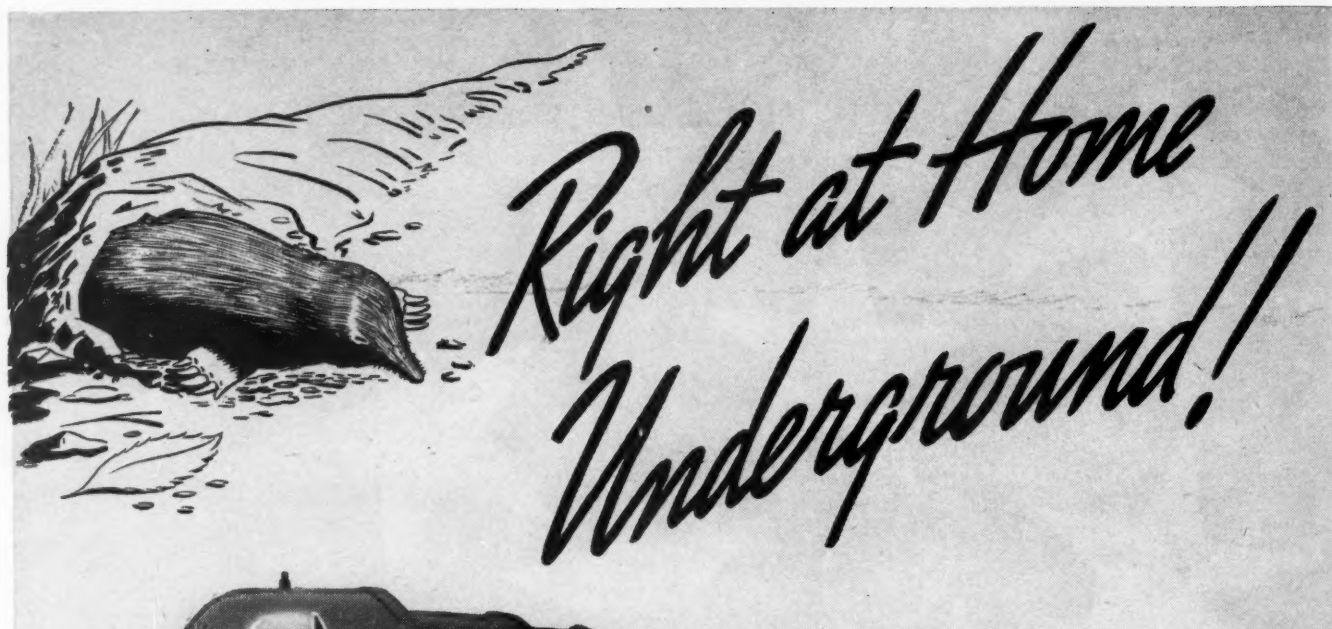 Right at Home
Underground!